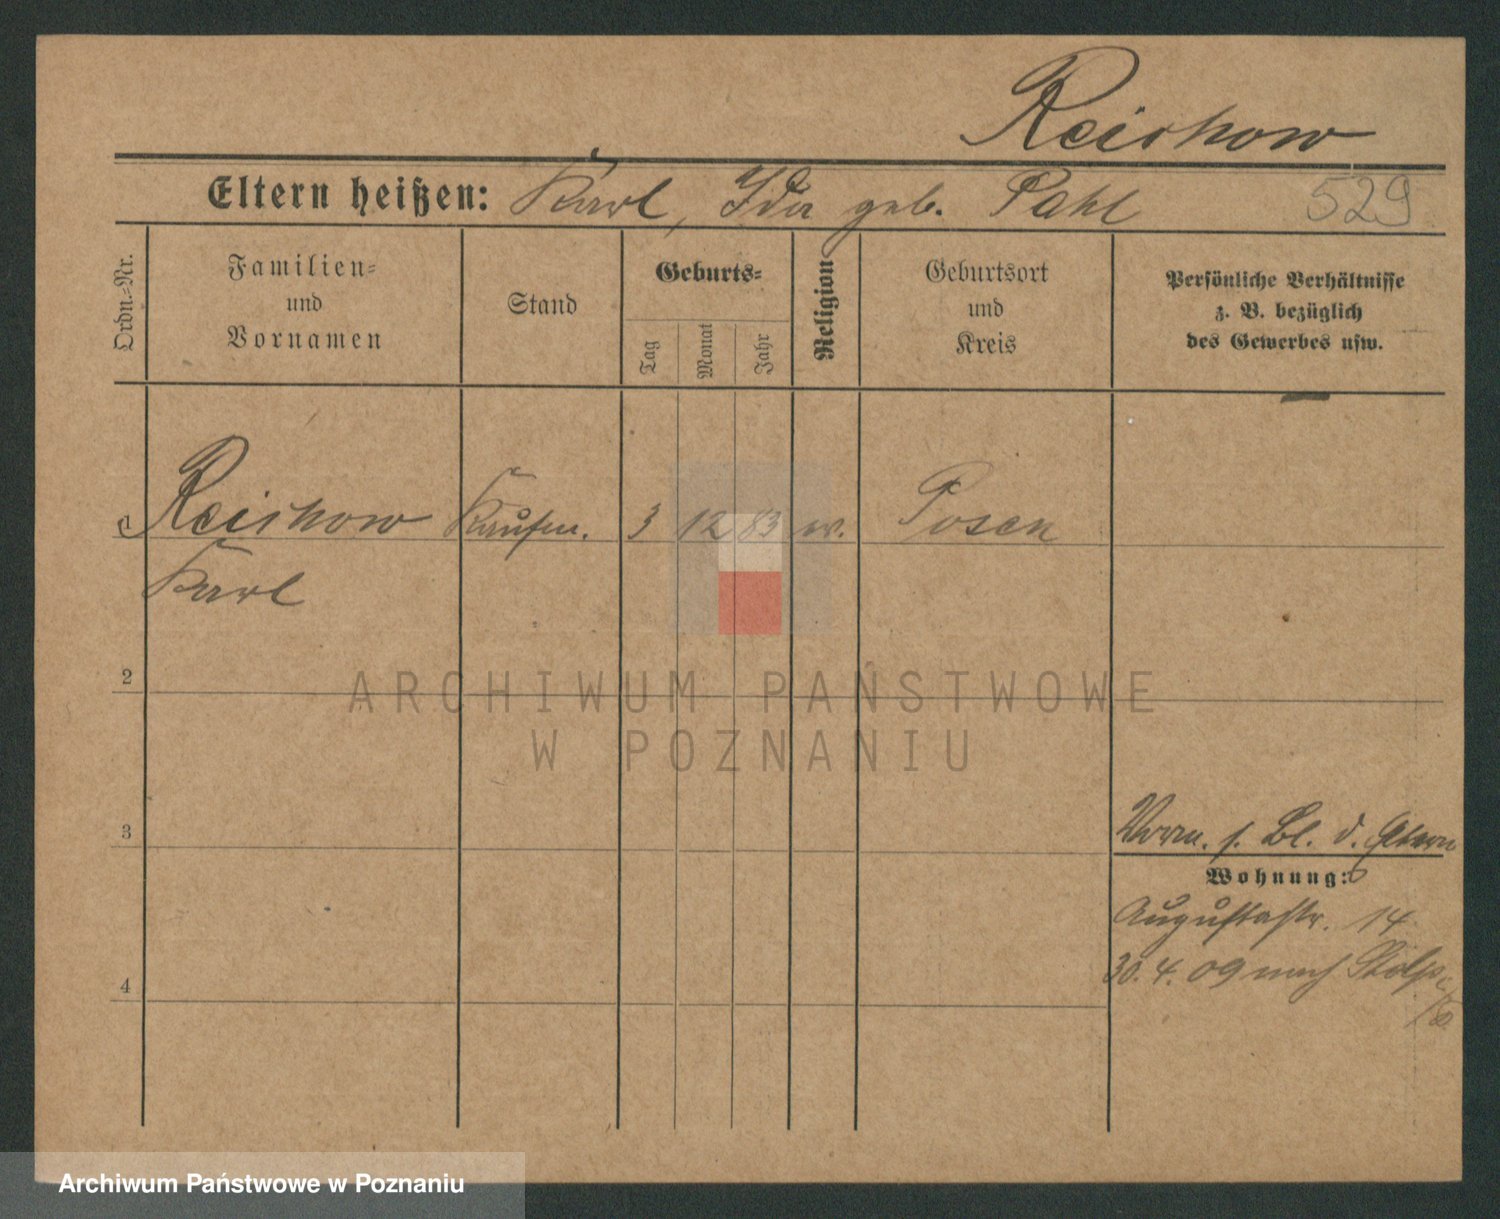 Reischow
Eltern heißen: Karl, Ida geb. Pahl
529
Ordn.-Nr.
Familien-
und
Vornamen
Stand
Geburts-
Tag
Monat
Jahr
Religion
Geburtsort
und
Kreis
Persönliche Verhältnisse
z. B. bezüglich
des Gewerbes usw.
Reischow Kaufm. 3 12 83 ev. Posen
Karl
2
ARCHIWUM PAŃSTWOWE
W POZNANIU
3
Vorm. s. Bl. d. Eltern
Wohnung:
Augustastr. 14
4
30. 4. 09 nach Stolp
Archiwum Państwowe w Poznaniu